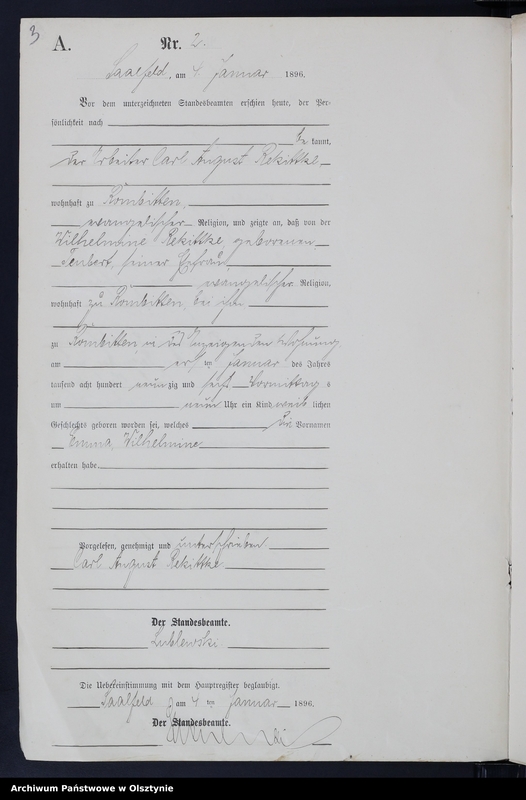 3
A. Nr. 2.
Saalfeld, am 4. Januar 1896.
Vor dem unterzeichneten Standesbeamten erschien heute, der Per-
sönlichkeit nach
be kannt,
der Arbeiter Carl August Rekittke
wohnhaft zu Kömbitten,
evangelischer Religion, und zeigte an, daß von der
Wilhelmine Rekittke, geborenen
Teubert, seiner Ehefrau
evangelischer Religion,
wohnhaft zu Kömbitten, bei ihm
zu Kömbitten in des Anzeigenden Wohnung
am ersten Januar des Jahres
tausend acht hundert neunzig und sechs Vormittags
um neun Uhr ein Kind weib lichen
Geschlechts geboren worden sei, welches die Vornamen
Emma, Wilhelmine
erhalten habe.
Vorgelesen, genehmigt und unterschrieben
Carl August Rekittke
Der Standesbeamte.
Lublewski
Die Uebereinstimmung mit dem Hauptregister beglaubigt.
Saalfeld am 4 ten Januar 1896.
Der Standesbeamte.
Archiwum Państwowe w Olsztynie